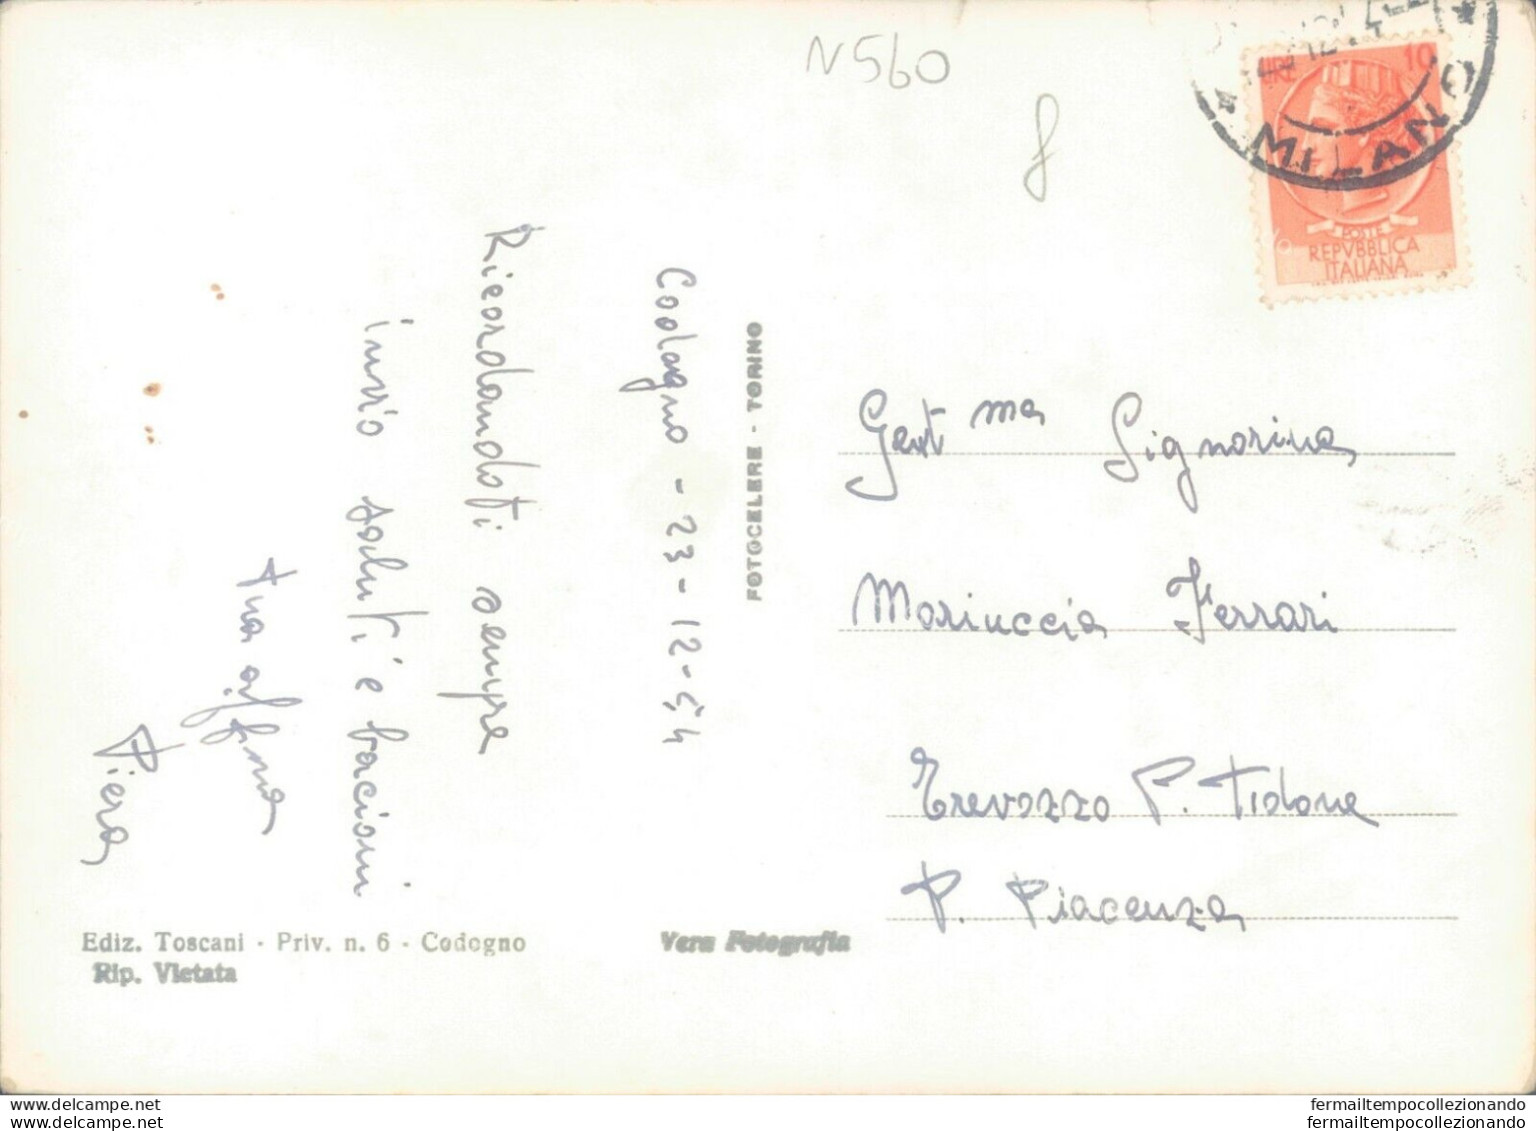 N560
LIRE 10
MILANO
POSTE
REPVBBLICA
ITALIANA
Codogno - 23-12-54
Ricordandoti sempre
invio saluti e bacioni
tua aff.ma
Piera
FOTOCELERE - TORINO
Gent ma Signorina
Mariuccia Ferrari
Trevozzo P. Tidone
P. Piacenza
Ediz. Toscani - Priv. n. 6 - Codogno
Rip. Vietata
Vera Fotografia
delcampe.net
fermailtempocollezionando
delcampe.net
fermailtempocollezionando